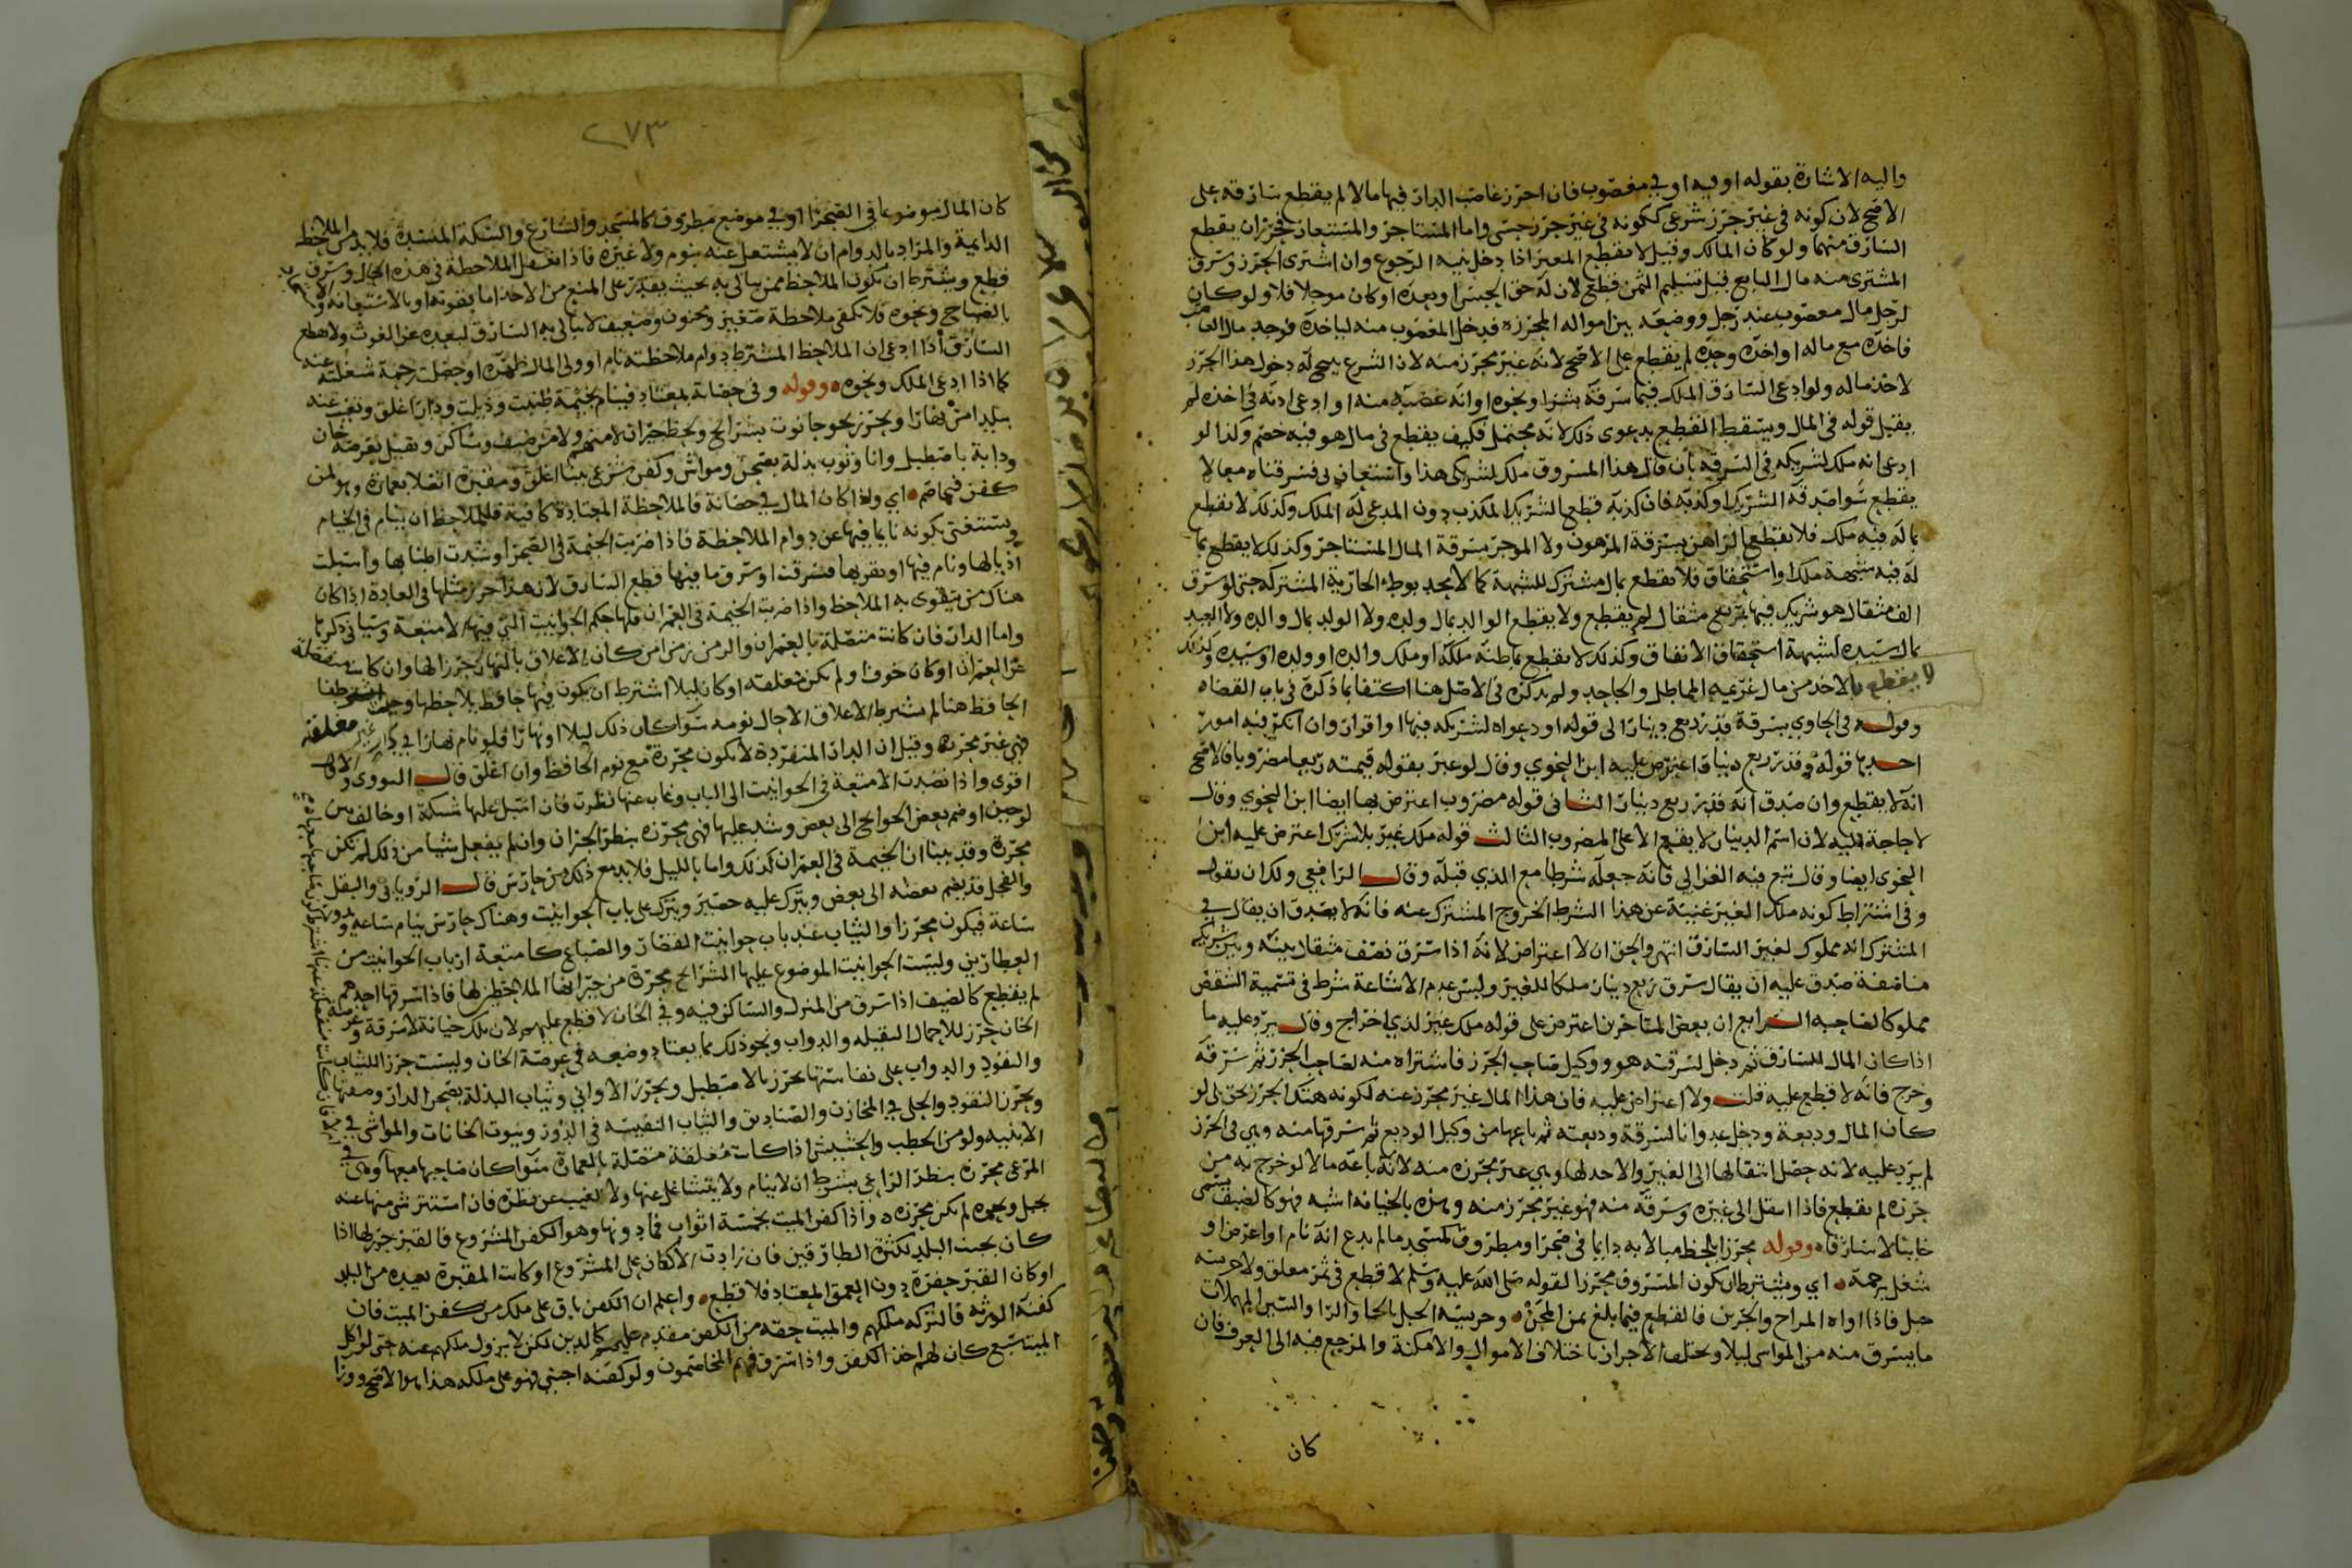 واليه الاشارة بقوله او فيه او في مغصوب فان احرز غاصب الدار فيها مالا لم يقطع سارقه على
الاصح لان كونه في غير حرز شرعي ككونه في غير حرز حسي واما المستاجر والمستعار فحرزان يقطع
السارق منهما ولو كان المالك وقيل لا يقطع المعير اذا دخل بنية الرجوع وان اشترى الحرز وسرق
المشتري منه مال البايع قبل تسليم الثمن قطع لان له حق الحبس او بعده او كان موجلا فلا ولو كان
لرجل مال مغصوب عند رجل ووضعه بين امواله المحرزه فدخل المغصوب منه لياخذه فوجد مال الغاصب
فاخذه مع ماله او اخذه وحده لم يقطع على الاصح لانه غير محرز منه لان الشرع يبيح له دخول هذا الحرز
لاخذ ماله ولو ادعى السارق الملك فيما سرقه بشرا ونحوه او انه غصبه منه او ادعى اذنه في اخذه لم
يقبل قوله في المال ويسقط القطع بدعوى ذلك لانه محتمل فكيف يقطع في مال هو فيه خصم وكذا لو
ادعى انه ملك لشريكه في السرقة بان قال هذا المسروق ملك لشريكي هذا واستعان بي فسرقناه معا لا
يقطع سوا صدقه الشريك او كذبه فان كذبه قطع الشريك المكذب دون المدعى له الملك وكذلك لا يقطع
بما له فيه ملك فلا يقطع الراهن بسرقة المرهون ولا الموجر بسرقة المال المستاجر وكذلك لا يقطع بما
له فيه شبهة ملك او استحقاق فلا يقطع بمال مشترك للشبهة كما لا يحد بوطء الجارية المشتركة حتى لو سرق
الف مثقال هو شريك فيها بربع مثقال لم يقطع ولا يقطع الوالد بمال ولده ولا الولد بمال والده ولا العبد
بمال سيده لشبهة استحقاق الانفاق وكذلك لا يقطع بما ظنه ملكه او ملك والده او ولده او سيده وكذلك
لا يقطع بالاخذ من مال غريمه المماطل والجاحد ولم يذكره في الاصل هنا اكتفا بما ذكره في باب القضاء
وقوله في الحاوي بسرقة قدر ربع دينار الى قوله او دعواه لشريكه فيها او اقرار وان انكر فيه امور
احدها قوله وقدر ربع دينار اعترض عليه ابن النحوي وقال لو عبر بقوله قيمته ربعا مضروبا فالاصح
انه لا يقطع وان صدق انه قدر ربع دينار الثاني قوله مضروب اعترض بها ايضا ابن النحوي وقال
لا حاجة اليه لان اسم الدينار لا يقع الا على المضروب الثالث قوله ملك غير بلا شرك اعترض عليه ابن
النحوي ايضا وقال تبع فيه الغزالي فانه جعله شرطا مع الذي قبله وقال الرافعي ولك ان تقول
وفي اشتراط كونه ملك الغير غنية عن هذا الشرط الخروج المشترك عنه فانه لا يصدق ان يقال في
المشترك انه مملوك لغير السارق انتهى والحق ان لا اعتراض لانه اذا سرق نصف مثقال بينه وبين شريكه
مناصفة صدق عليه ان يقال سرق ربع دينار ملكا للغير وليس عدم الاشاعة شرط في تسمية الشقص
مملوكا لصاحبه الرابع ان بعض المتاخرين اعترض على قوله ملك غير لدى اخراج وقال يرد عليه ما
اذا كان المال للسارق ثم دخل لسرقته هو ووكيل صاحب الحرز فاشتراه منه لصاحب الحرز ثم سرقه
وخرج فانه لا قطع عليه قلت ولا اعتراض عليه فان هذا المال غير محرز عنه لكونه هتك الحرز بحق بلى لو
كان المال وديعة ودخل عدوانا لسرقة وديعته ثم باعها من وكيل الوديع ثم سرقها منه وهي في الحرز
لم يرد عليه لانه حصل انتقالها الى الغير والاحد لها وهي غير محرزه منه لانه باعه مالا لو خرج به من
حرزه لم يقطع فاذا انتقل الى غيره وسرقه منه فهو غير محرز منه وهذه بالخيانه اشبه فهو كالضيف يسمى
خاينا لا سارقا وقوله محرزا بلحظ مبالا به دايما في صحرا ومطروق كمسجد ما لم يدع انه نام او اعرض او
شغل برحمة اي ويشترط ان يكون المسروق محرزا لقوله صلى الله عليه وسلم لا قطع في ثمر معلق ولا حريسة
جبل فاذا اواه المراح والجرين فالقطع فيما بلغ ثمن المجن وحريسة الجبل بالحا والرا والسين المهملات
ما يسرق منه من المواشي ليلا ويختلف الاحراز باختلاف الاموال والامكنة والمرجع فيه الى العرف فان
كان
٢٧٣
كان المال موضوعا في الصحرا او في موضع مطروق كالمسجد والشارع والسكة المنسدة فلا بد من الملاحظ
الدايمة والمراد بالدوام ان لا يشتغل عنه بنوم ولا غيره فاذا تغفل الملاحظة في هذه الحال وسرق
قطع ويشترط ان يكون الملاحظ ممن يبالى به بحيث يقدر على المنع من الاخذ اما بقوته او بالاستعانه
بالصياح ونحوه فلا تكفي ملاحظة صغير ومجنون وضعيف لا يبالي به السارق لبعده عن الغوث ولا قطع
السارق اذا ادعى ان الملاحظ المشترط دوام ملاحظته نام او ولى المال ظهره او حصلت زحمة شغلته عنه
كما اذا ادعى الملك ونحوه وقوله وفي حصانة بمعتاد فينام بخيمة طنبت وذيلت ودار اغلق وتغيب عنه
ببلد امن نهارا ويحرز نحو حانوت بشرايح ولحظ جيران لا منهم ولا من ضيف وساكن وتقبل بعرصة خان
ودابة باصطبل وانا وثوب بذلة بصحن ومواش وكفن شرعي ببنا اغلق ومقبرة اتصلا بعمارة وهو لمن
كفن فيما ضم اي واذا كان المال في حصانة فالملاحظة المعتادة كافية فللملاحظ ان ينام في الخيام
ويستغنى بكونه نايما فيها عن دوام الملاحظة فاذا ضربت الخيمة في الصحرا وشدت اطنابها واسبلت
اذيالها ونام فيها او بقربها فسرقت او سرق ما فيها قطع السارق لان هذا حرز مثلها في العادة اذا كان
هناك من يتقوى به الملاحظ واذا ضربت الخيمة في العمران فلها حكم الحوانيت التي فيها الامتعة وسياتي ذكرها
واما الدار فان كانت متصلة بالعمران والزمن زمن امن كان الاغلاق بالنهار حرزا لها وان كانت منفصلة
عن العمران او كان خوفا ولم تكن مغلقة او كان ليلا اشترط ان يكون فيها حافظ يلاحظها
الحافظ هنا لم يشترط الاغلاق الا حال نومه سوا كان ذلك ليلا او نهارا فلو نام نهارا في دار غير مغلقه
فهي غير محرزة وقيل ان الدار المنفردة لا تكون محرزة مع نوم الحافظ وان اغلق قال النووي
اقوى واذا نضدت الامتعة في الحوانيت الى الباب وغاب عنها نظرت فان اسبل عليها شبكة او خالف بين
لوحين او ضم بعض الحوايج الى بعض وشد عليها فهي محرزة بنظر الجيران وان لم يفعل شيا من ذلك لم تكن
محرزة وقد بينا ان الخيمة في العمران كذلك واما بالليل فلا بد مع ذلك من حارس قال الروياني والبقل
والفجل قد يضم بعضه الى بعض ويترك عليه حصير ويترك على باب الحوانيت وهناك حارس ينام ساعه ويدور
ساعة فيكون محرزا والثياب عند باب حوانيت القصار والصباغ كامتعة ارباب الحوانيت من
العطارين وليست الحوانيت الموضوع عليها الشرايح محرزة من جيرانها الملاحظين لها فاذا سرقها احدهم
لم يقطع كالضيف اذا سرق من المنزل والساكن فيه وفي الخان لا قطع عليهم لان تلك خيانة لا سرقة وعرصة
الخان حرز للاحمال الثقيله والدواب ونحو ذلك مما يعتاد وضعه في عرصة الخان وليست حرزا للثياب
والنقود والدواب على نفاستها تحرز بالاصطبل وتحرز الاواني وثياب البذلة بصحن الدار وصفتها
وتحرز النقود والحلي في المخازن والصناديق والثياب النفيسه في الدور وبيوت الخانات والمواشي في
الابنيه ولو من الحطب والحشيش اذا كانت مغلقة متصلة بالعمارة سوا كان صاحبها معها وهي في
المرعى محرزة بنظر الراعي بشرط ان لا ينام ولا يتشاغل عنها ولا تغيب عن نظره فان استتر شي منها عنه
بجبل ونحوه لم تكن محرزه واذا كفن الميت بخمسة اثواب فما دونها وهو الكفن المشروع فالقبر حرز لها اذا
كان بجنب البلد لكثرة الطارقين فان زادت الاكفان على المشروع او كانت المقبرة بعيده من البلد
او كان القبر حفرة دون العمق المعتاد فلا قطع واعلم ان الكفن باق على ملك من كفن الميت فان
كفنه الورثه فالتركه ملكهم والميت حقه من الكفن مقدم عليهم كالدين لكن لا يزول ملكهم عنه حتى لو اكل
الميت سبع كان لهم اخذ الكفن واذا سرق فهم المخاصمون ولو كفنه اجنبي فهو على ملكه هذا هو الاصح